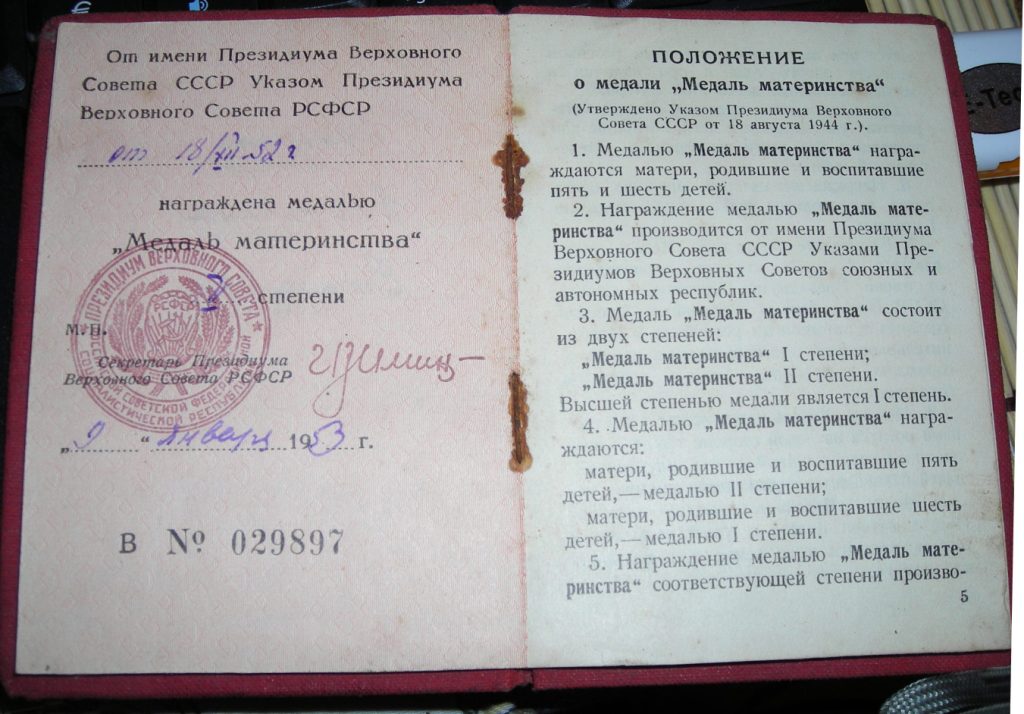 От имени Президиума Верховного
Совета СССР Указом Президиума
Верховного Совета РСФСР
от 18/XII-52 г
награждена медалью
„Медаль материнства“
степени
М.П.
Секретарь Президиума
Верховного Совета РСФСР
„9“ января 1953 г.
В № 029897
ПРЕЗИДИУМ ВЕРХОВНОГО СОВЕТА
РСФСР
ПОЛОЖЕНИЕ
о медали „Медаль материнства“
(Утверждено Указом Президиума Верховного
Совета СССР от 18 августа 1944 г.).
1. Медалью „Медаль материнства“ награ-
ждаются матери, родившие и воспитавшие
пять и шесть детей.
2. Награждение медалью „Медаль мате-
ринства“ производится от имени Президиума
Верховного Совета СССР Указами Пре-
зидиумов Верховных Советов союзных и
автономных республик.
3. Медаль „Медаль материнства“ состоит
из двух степеней:
„Медаль материнства“ I степени;
„Медаль материнства“ II степени.
Высшей степенью медали является I степень.
4. Медалью „Медаль материнства“ награ-
ждаются:
матери, родившие и воспитавшие пять
детей,—медалью II степени;
матери, родившие и воспитавшие шесть
детей,—медалью I степени.
5. Награждение медалью „Медаль мате-
ринства“ соответствующей степени произво-
5